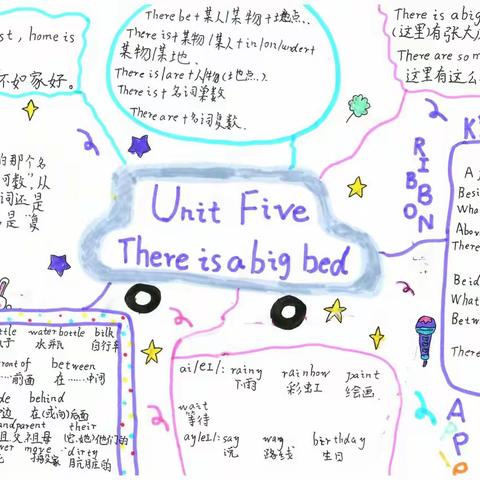 st, home is
不如家好。
There be + 某人/某物 + 地点..
There is + 某物/某人 + in/on/under +
某物/某地.
There is/are + 人/物 (土也点..).
There is + 名词单数
There are + 名词复数.
There is a big
(这里)有张大
There are som
这里有这么
的那个名
可数".从
词还是
是"复
Unit Five
There is a big bed
RIBBON
K
A
Besi
Who
Abov
There
Beid
What
Betw
There
APP
ttle water bottle bilk
子 水瓶 自行车
front of between
……前面 在……中间
de behind
边 在(或向)后面
andparent their
祖父祖母 他(她)们的
wer move dirty
搬家 肮脏的
ai/eɪ/: rainy rainbow paint
下雨 彩虹 绘画
wait
等待
ay/eɪ/: say way berthday
说 路线 生日